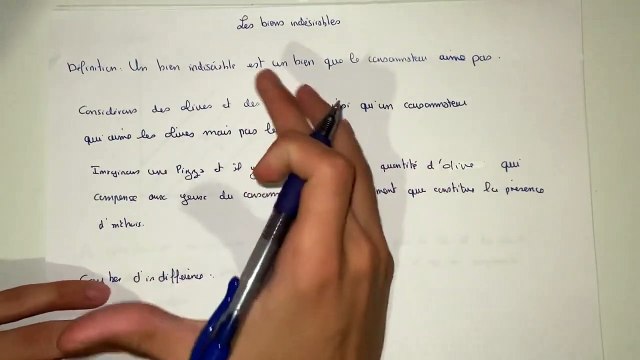 Les biens indésirables
Définition : Un bien indésirable est un bien que le consommateur aime pas.
Considérons des olives et des qu'un consommateur
qui aime les olives mais pas le
Imaginons une Pizza et il quantité d'olive qui
compense aux yeux du que constitue la présence
d'
Courbes d'indifférence :